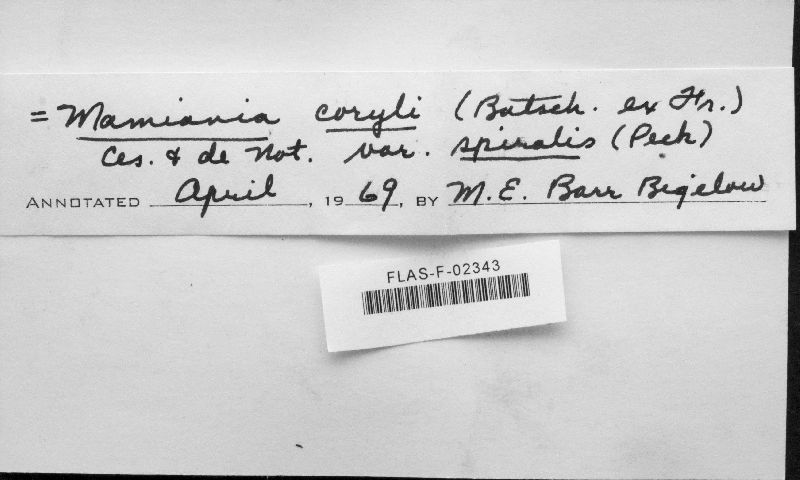 = Mamiania coryli (Batsch. ex Fr.)
Ces. & de Not. var. spiralis (Peck)
ANNOTATED April, 1969, BY M.E. Barr Bigelow
FLAS-F-02343